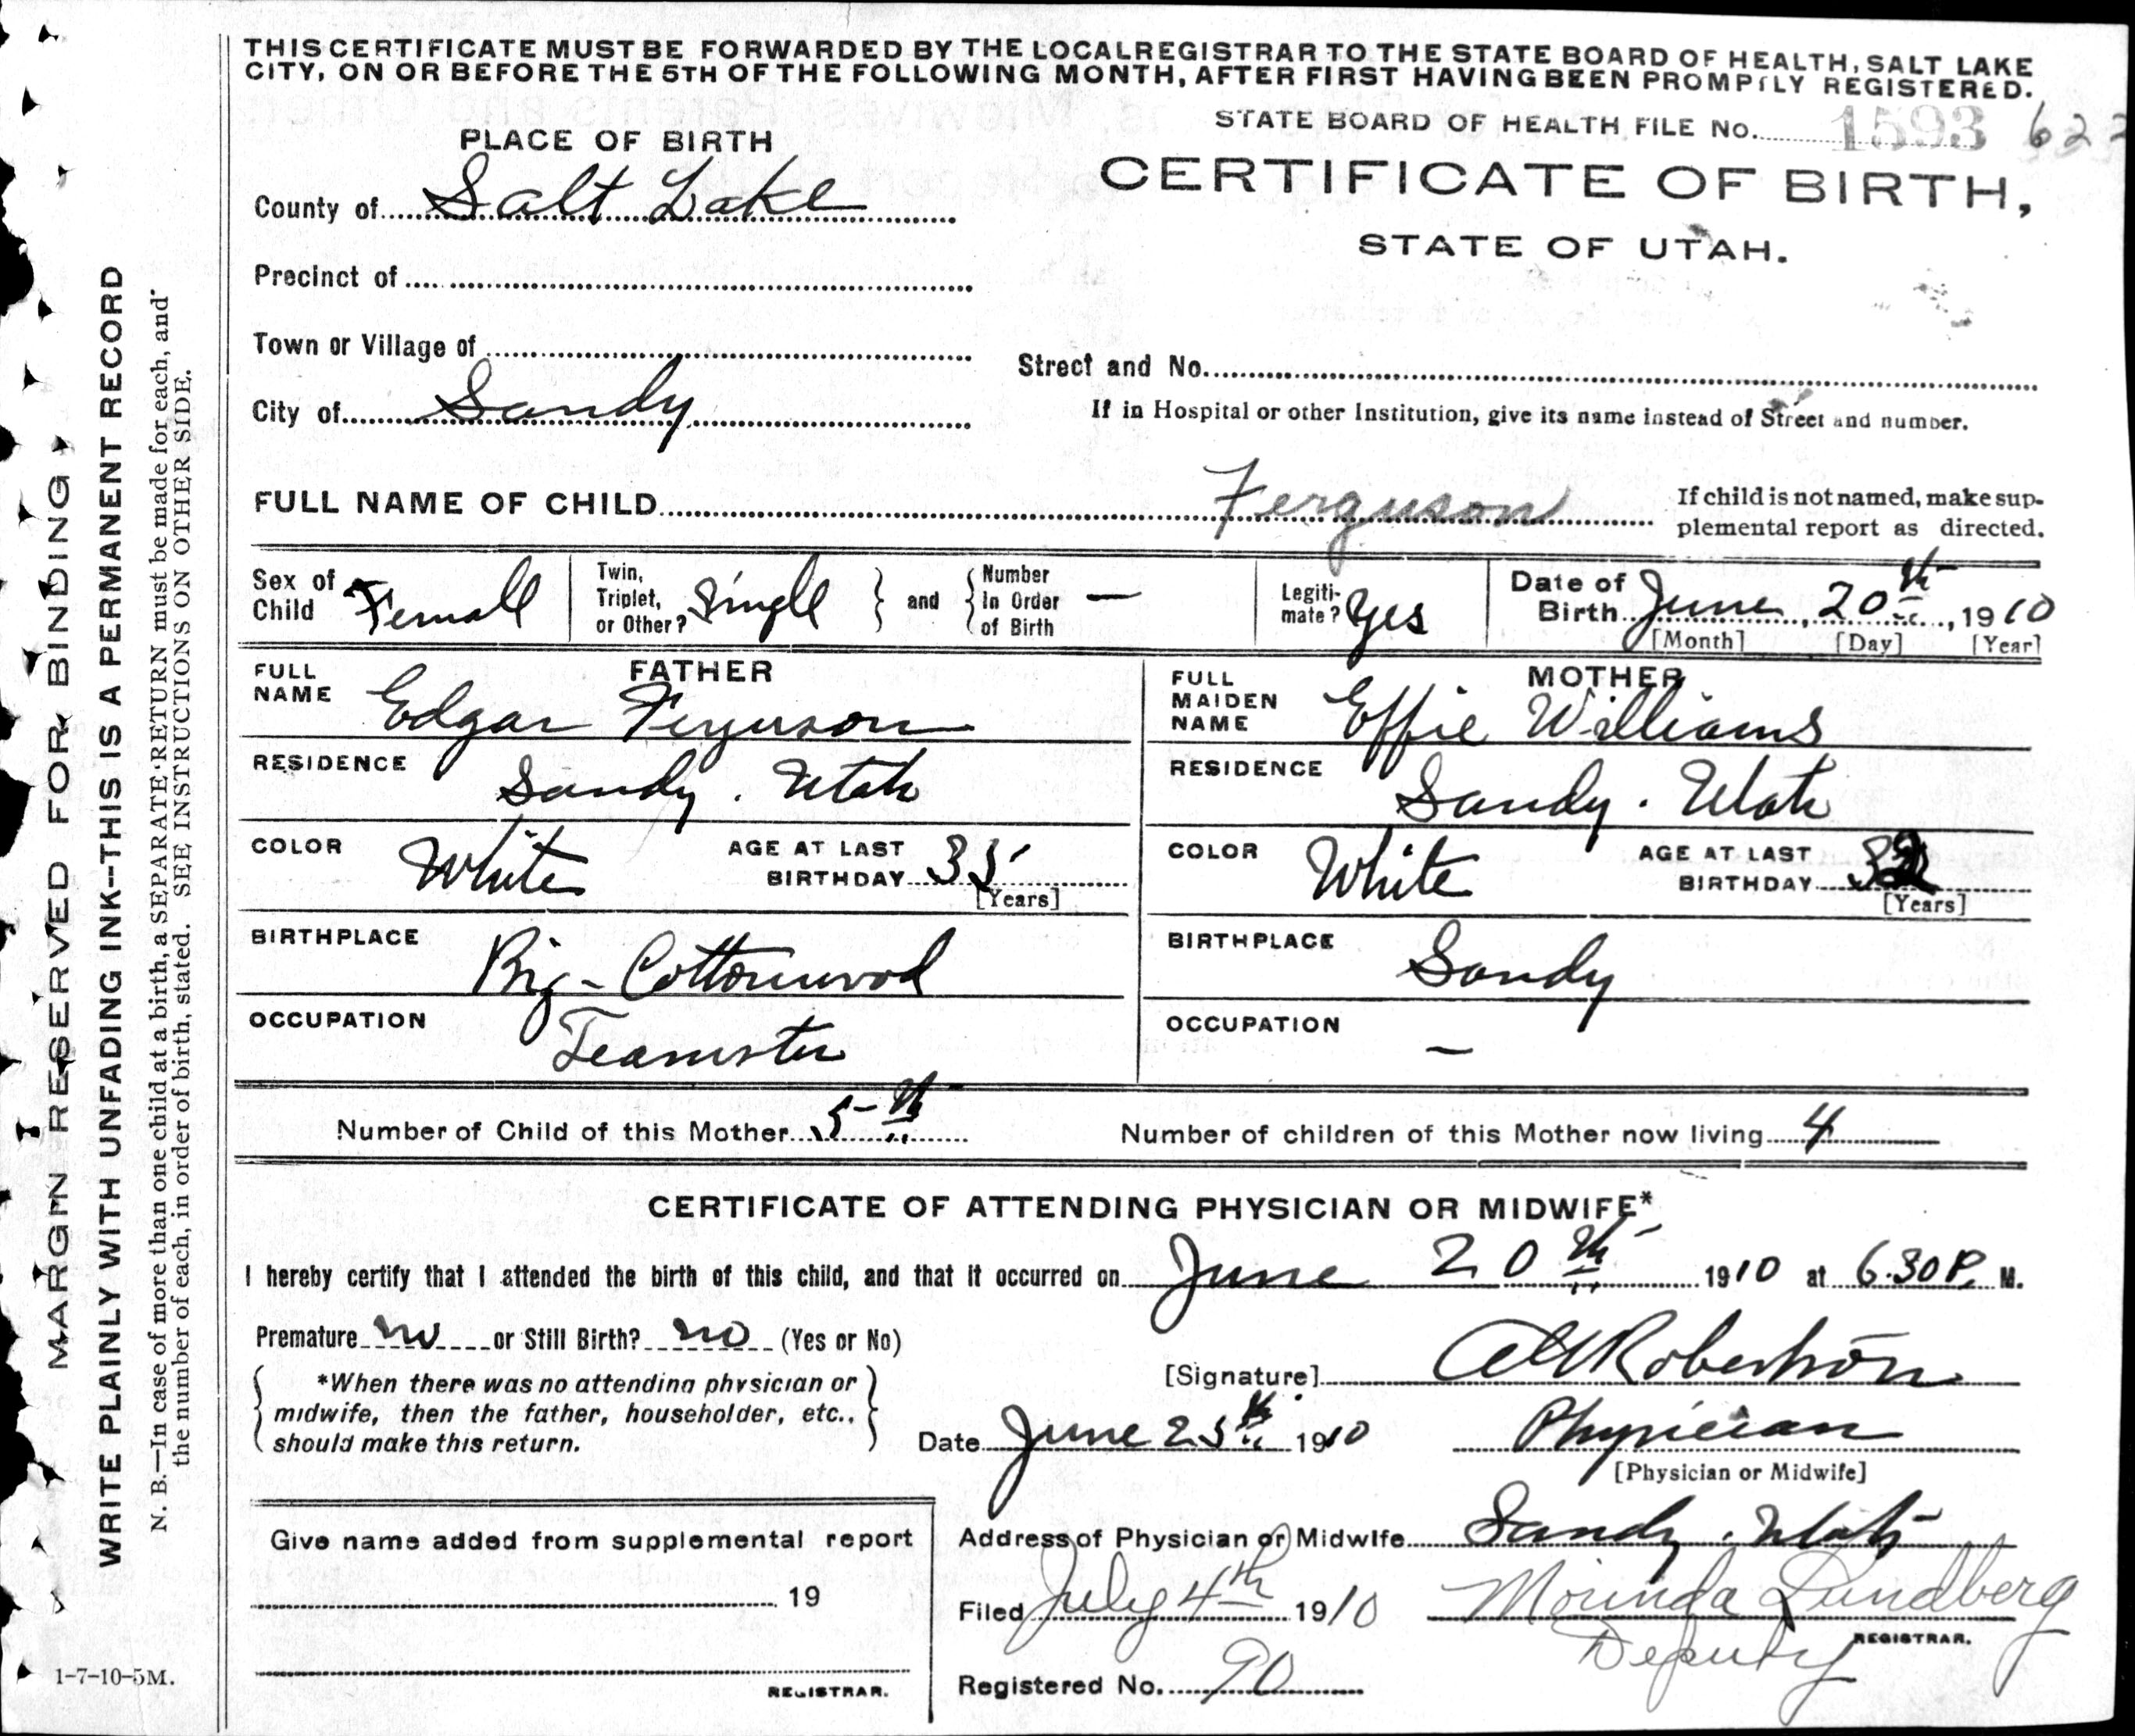 THIS CERTIFICATE MUST BE FORWARDED BY THE LOCAL REGISTRAR TO THE STATE BOARD OF HEALTH, SALT LAKE
CITY, ON OR BEFORE THE 5TH OF THE FOLLOWING MONTH, AFTER FIRST HAVING BEEN PROMPTLY REGISTERED.
STATE BOARD OF HEALTH FILE No. 1593 622
PLACE OF BIRTH
CERTIFICATE OF BIRTH,
STATE OF UTAH.
County of Salt Lake
Precinct of
Town or Village of
Street and No.
City of Sandy
If in Hospital or other Institution, give its name instead of Street and number.
FULL NAME OF CHILD Ferguson
If child is not named, make sup-
plemental report as directed.
Sex of Child Female
Twin, Triplet, or Other? Single } and { Number In Order of Birth —
Legiti-mate? Yes
Date of Birth June, 20th, 1910
[Month] [Day] [Year]
FATHER
FULL NAME Edgar Ferguson
RESIDENCE Sandy. Utah
COLOR White AGE AT LAST BIRTHDAY 35
[Years]
BIRTHPLACE Big-Cottonwood
OCCUPATION Teamster
MOTHER
FULL MAIDEN NAME Effie Williams
RESIDENCE Sandy. Utah
COLOR White AGE AT LAST BIRTHDAY 32
[Years]
BIRTHPLACE Sandy
OCCUPATION —
Number of Child of this Mother 5th
Number of children of this Mother now living 4
CERTIFICATE OF ATTENDING PHYSICIAN OR MIDWIFE*
I hereby certify that I attended the birth of this child, and that it occurred on June 20th 1910 at 6.30 P. M.
Premature no or Still Birth? no (Yes or No)
*When there was no attending physician or
midwife, then the father, householder, etc.,
should make this return.
[Signature] Robertson
Date June 25th 1910
Physician
[Physician or Midwife]
Give name added from supplemental report
19
REGISTRAR.
Address of Physician or Midwife Sandy. Utah
Filed July 4th 1910 Morinda Lundberg
REGISTRAR.
Deputy
Registered No. 90
MARGIN RESERVED FOR BINDING
WRITE PLAINLY WITH UNFADING INK--THIS IS A PERMANENT RECORD
N. B.—In case of more than one child at a birth, a SEPARATE RETURN must be made for each, and
the number of each, in order of birth, stated. SEE INSTRUCTIONS ON OTHER SIDE.
1-7-10-5M.